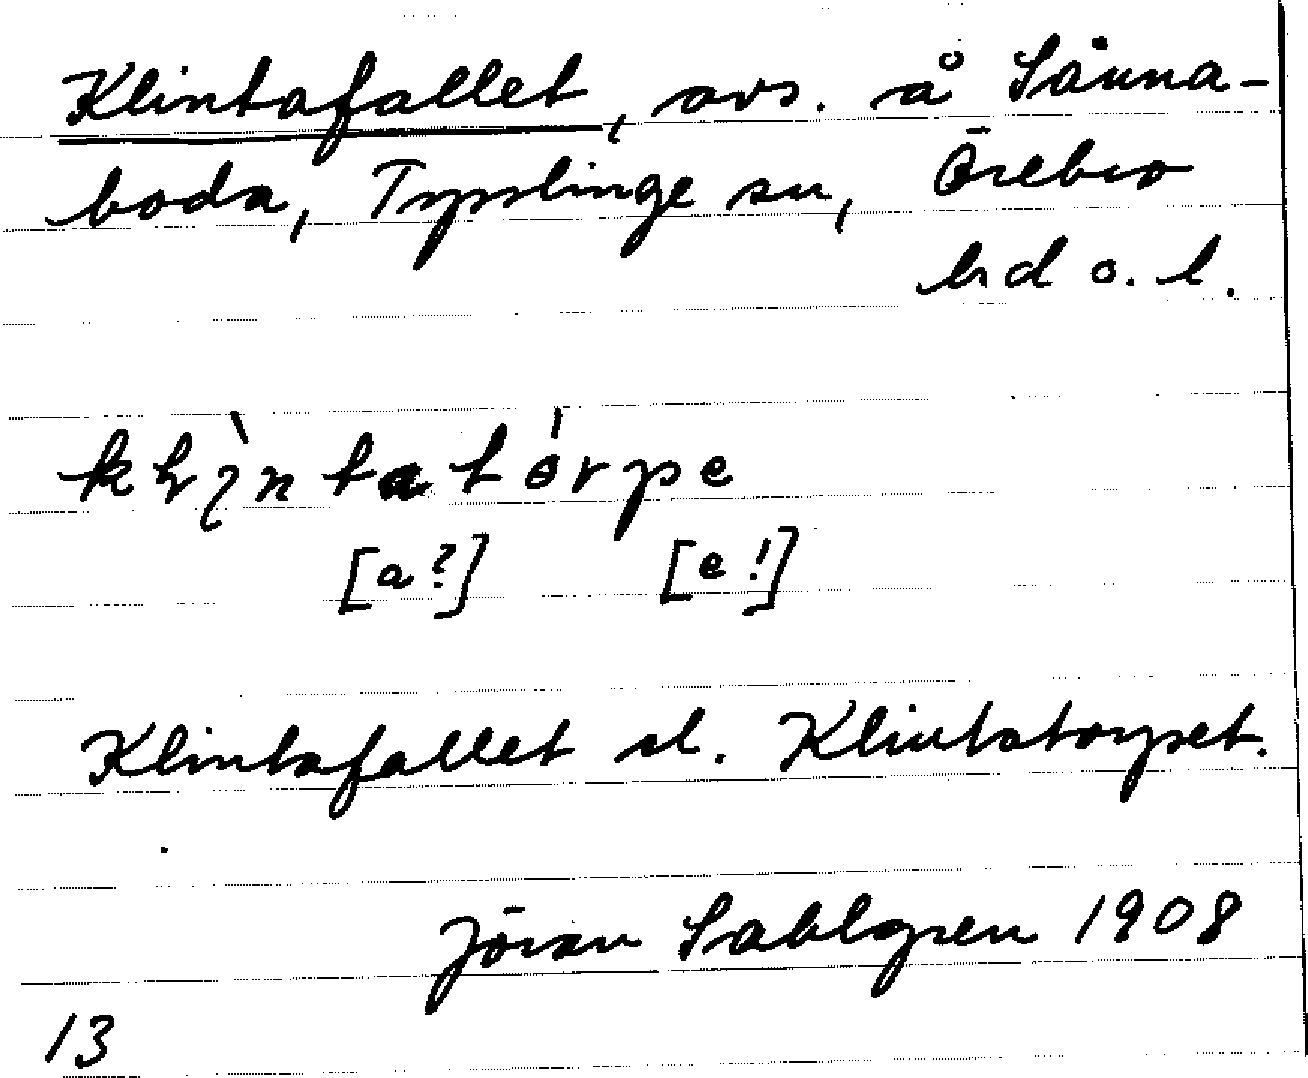 Klintafallet, avs. å Sånna-
boda, Tysslinge sn, Örebro
hd o. l.
kḷìntatórpe
[a?] [e!]
Klintafallet el. Klintatorpet.
Jöran Sahlgren 1908
13